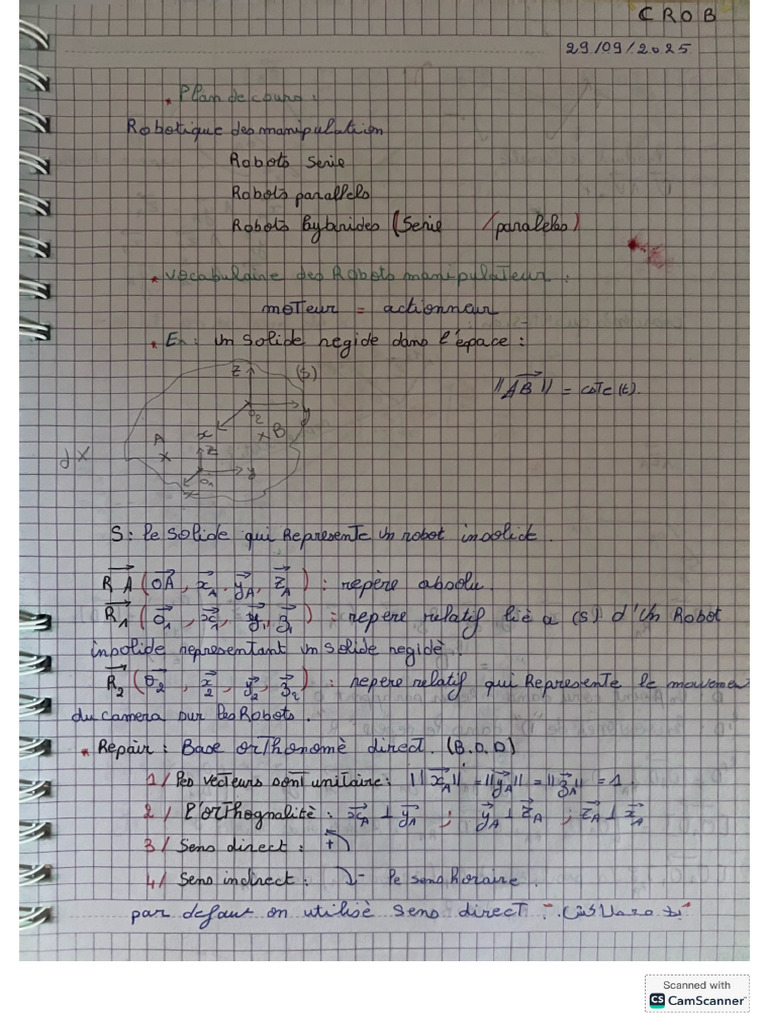 CROB
29/09/2025
• Plan de cours :
Robotique des manipulation
Robots Serie
Robots parallels
Robots hybrides (Serie /paralels)
• Vocabulaire des Robots manipulateur :
moteur = actionneur
• Ex: un solide regide dans l'épace :
z (S)
||AB→|| = cste(t).
O2 y
x B
A
z
d X
O1 y
x
S: le solide qui Represente un robot insolide.
R A→ (OA→, xA→, yA→, zA→) : repère absolu.
R1→ (O1→, x1→, y1→, z1→) : repère relatif liè a (S) d'un Robot
insolide representant un solide regidè.
R2→ (O2→, x2→, y2→, z2→) : repere relatif qui Represente le mouvemen
du camera sur les Robots.
• Repair : Base orthonomè direct. (B.O.D)
1/ les vecteurs sont unitaire : ||xA→|| = ||yA→|| = ||zA→|| = 1.
2/ l'orthognalitè : xA→ ⊥ yA→ ; yA→ ⊥ zA→ ; zA→ ⊥ xA→
3/ Sens direct : +
4/ Sens indirect : - le sens horaire.
par defaut on utilisè sens direct
Scanned with
CS CamScanner